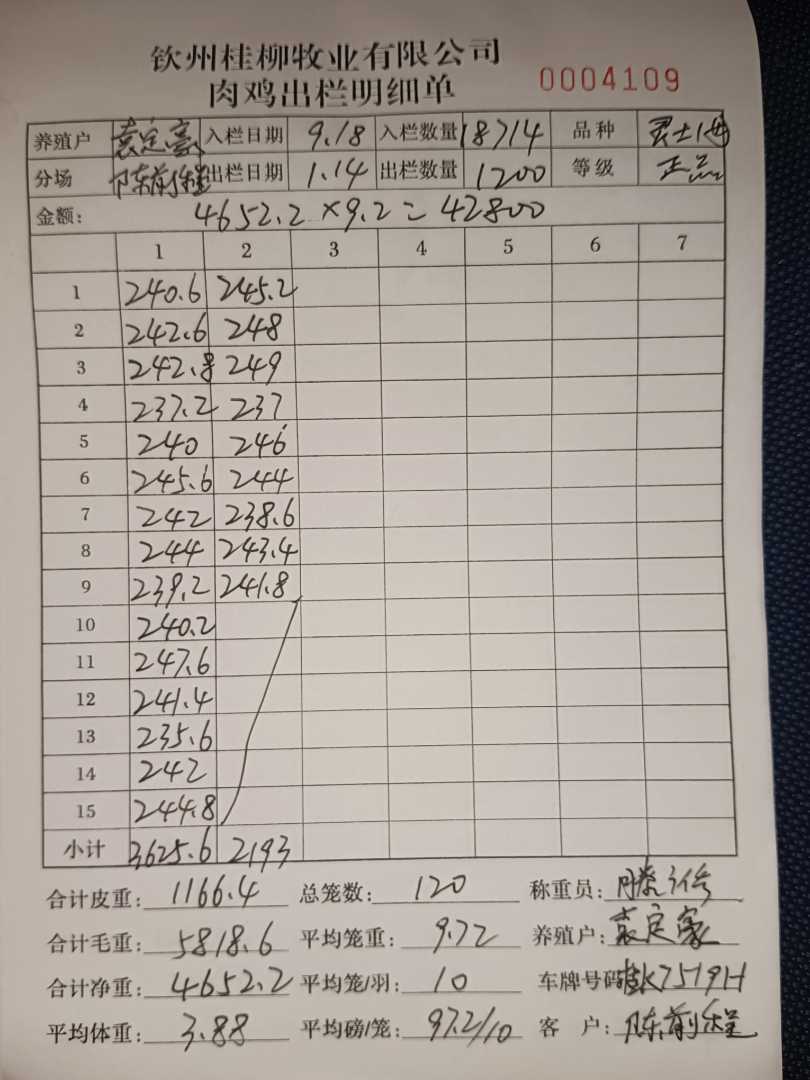 钦州桂柳牧业有限公司
肉鸡出栏明细单 0004109
养殖户 袁定豪 入栏日期 9.18 入栏数量 18714 品种
分场 陈前程 出栏日期 1.14 出栏数量 1200 等级 正品
金额: 4652.2×9.2=42800
1 2 3 4 5 6 7
1 240.6 245.2
2 242.6 248
3 242.8 249
4 237.2 237
5 240 246
6 245.6 244
7 242 238.6
8 244 243.4
9 239.2 241.8
10 240.2
11 247.6
12 241.4
13 235.6
14 242
15 244.8
小计 3625.6 2193
合计皮重: 1166.4 总笼数: 120 称重员:
合计毛重: 5818.6 平均笼重: 9.72 养殖户: 袁定豪
合计净重: 4652.2 平均笼/羽: 10 车牌号码: K7519H
平均体重: 3.88 平均磅/笼: 97.2/10 客 户: 陈前程